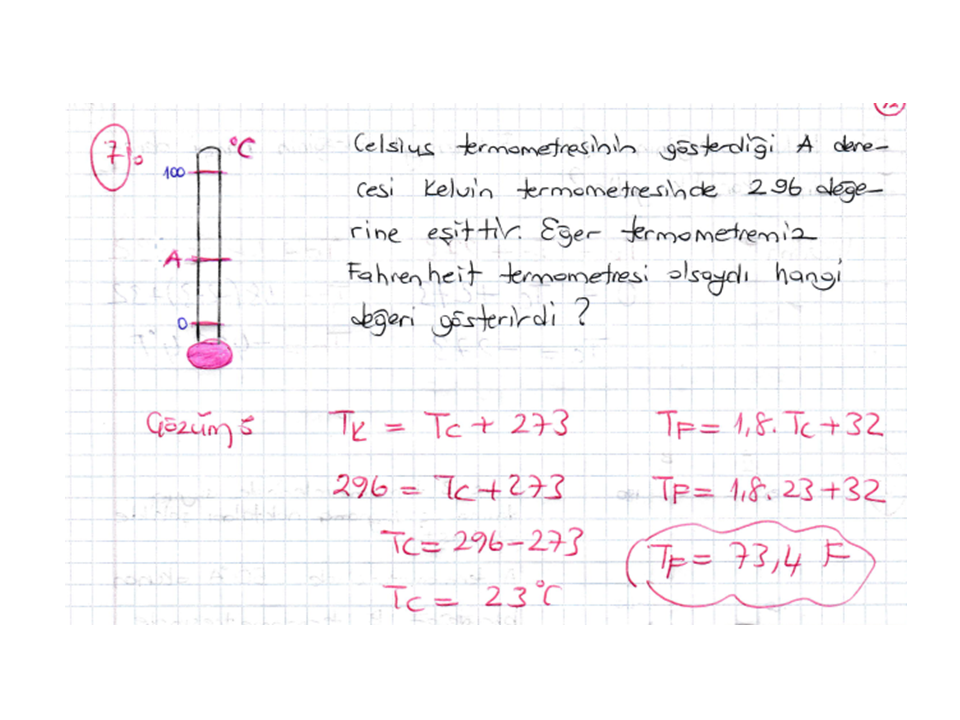 7.
°C
100
A
0
Celsius termometresinin gösterdiği A dere-
cesi Kelvin termometresinde 296 değe-
rine eşittir. Eğer termometremiz
Fahrenheit termometresi olsaydı hangi
değeri gösterirdi ?
Çözüm:
TK = TC + 273
296 = TC + 273
TC = 296 - 273
TC = 23°C
TF = 1,8. TC + 32
TF = 1,8. 23 + 32
TF = 73,4 F